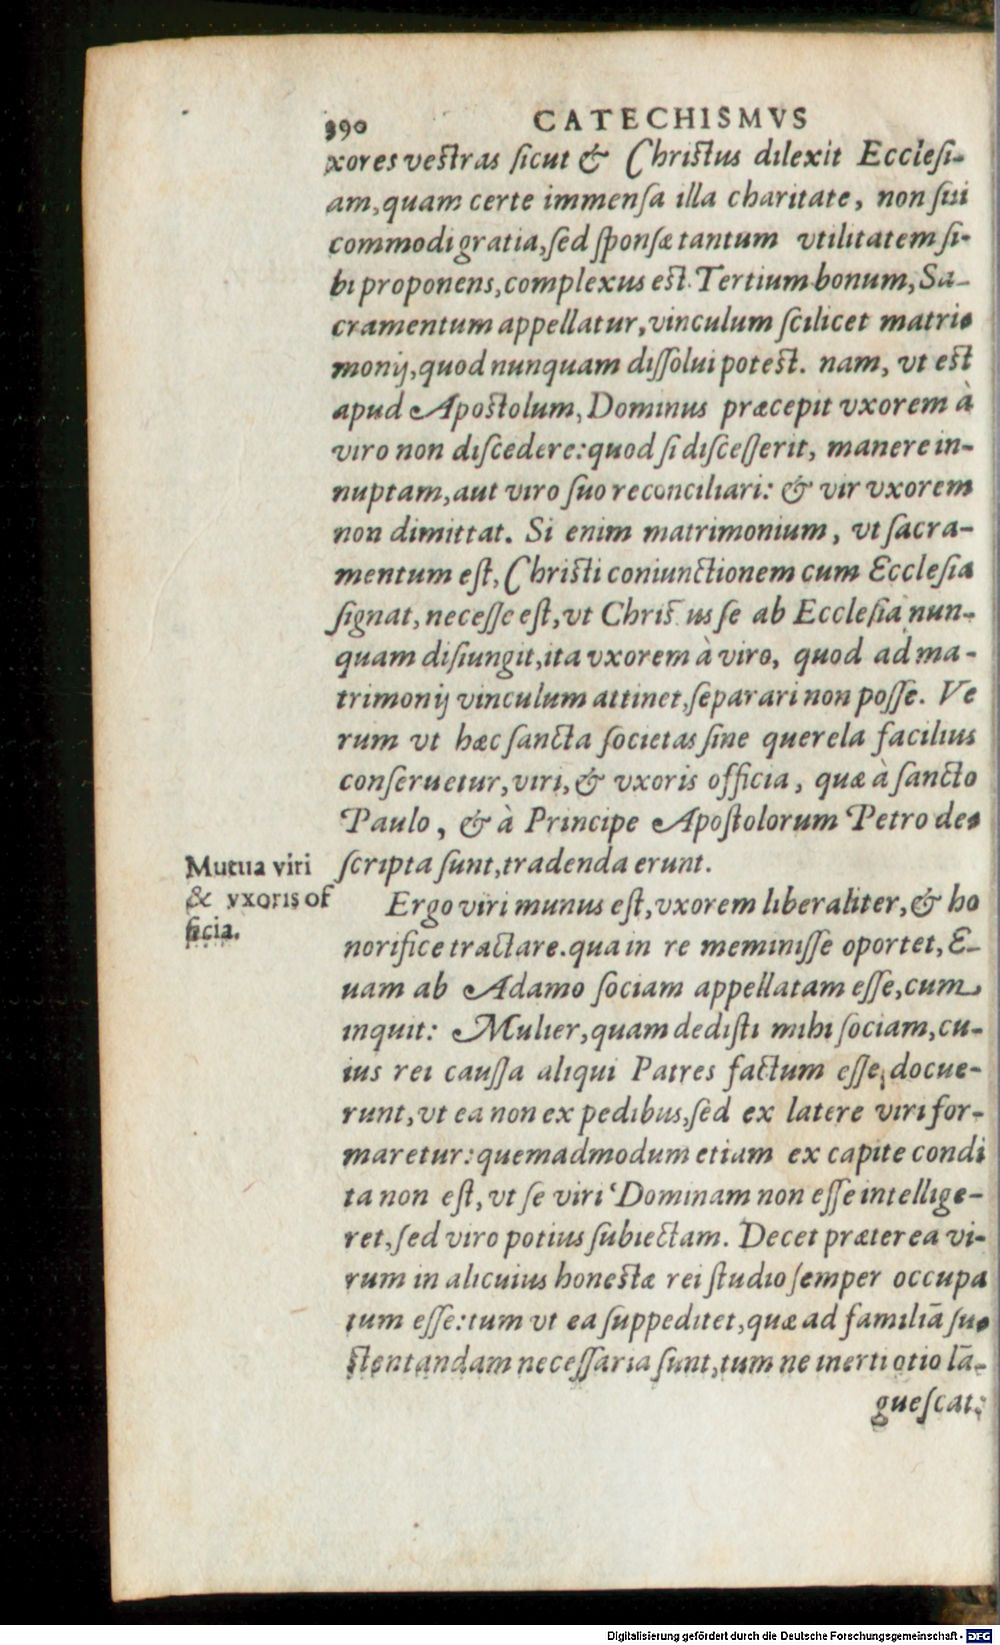 390 CATECHISMVS
xores vestras sicut & Christus dilexit Ecclesi-
am, quam certe immensa illa charitate, non sui
commodi gratia, sed sponsæ tantum vtilitatem si-
bi proponens, complexus est. Tertium bonum, Sa-
cramentum appellatur, vinculum scilicet matri-
monij, quod nunquam dissolui potest. nam, vt est
apud Apostolum, Dominus præcepit vxorem à
viro non discedere: quod si discesserit, manere in-
nuptam, aut viro suo reconciliari: & vir vxorem
non dimittat. Si enim matrimonium, vt sacra-
mentum est, Christi coniunctionem cum Ecclesia
signat, necesse est, vt Christus se ab Ecclesia nun-
quam disiungit, ita vxorem à viro, quod ad ma-
trimonij vinculum attinet, separari non posse. Ve
rum vt hæc sancta societas sine querela facilius
conseruetur, viri, & vxoris officia, quæ à sancto
Paulo, & à Principe Apostolorum Petro de-
scripta sunt, tradenda erunt.
Mutua viri
& vxoris of
ficia.
Ergo viri munus est, vxorem liberaliter, & ho
norifice tractare. qua in re meminisse oportet, E-
uam ab Adamo sociam appellatam esse, cum
inquit: Mulier, quam dedisti mihi sociam, cu-
ius rei caussa aliqui Patres factum esse docue-
runt, vt ea non ex pedibus, sed ex latere viri for-
maretur: quemadmodum etiam ex capite condi
ta non est, vt se viri Dominam non esse intellige-
ret, sed viro potius subiectam. Decet præterea vi-
rum in alicuius honestæ rei studio semper occupa
tum esse: tum vt ea suppeditet, quæ ad familiã su-
stentandam necessaria sunt, tum ne inerti otio lã-
guescat:
Digitalisierung gefördert durch die Deutsche Forschungsgemeinschaft - DFG